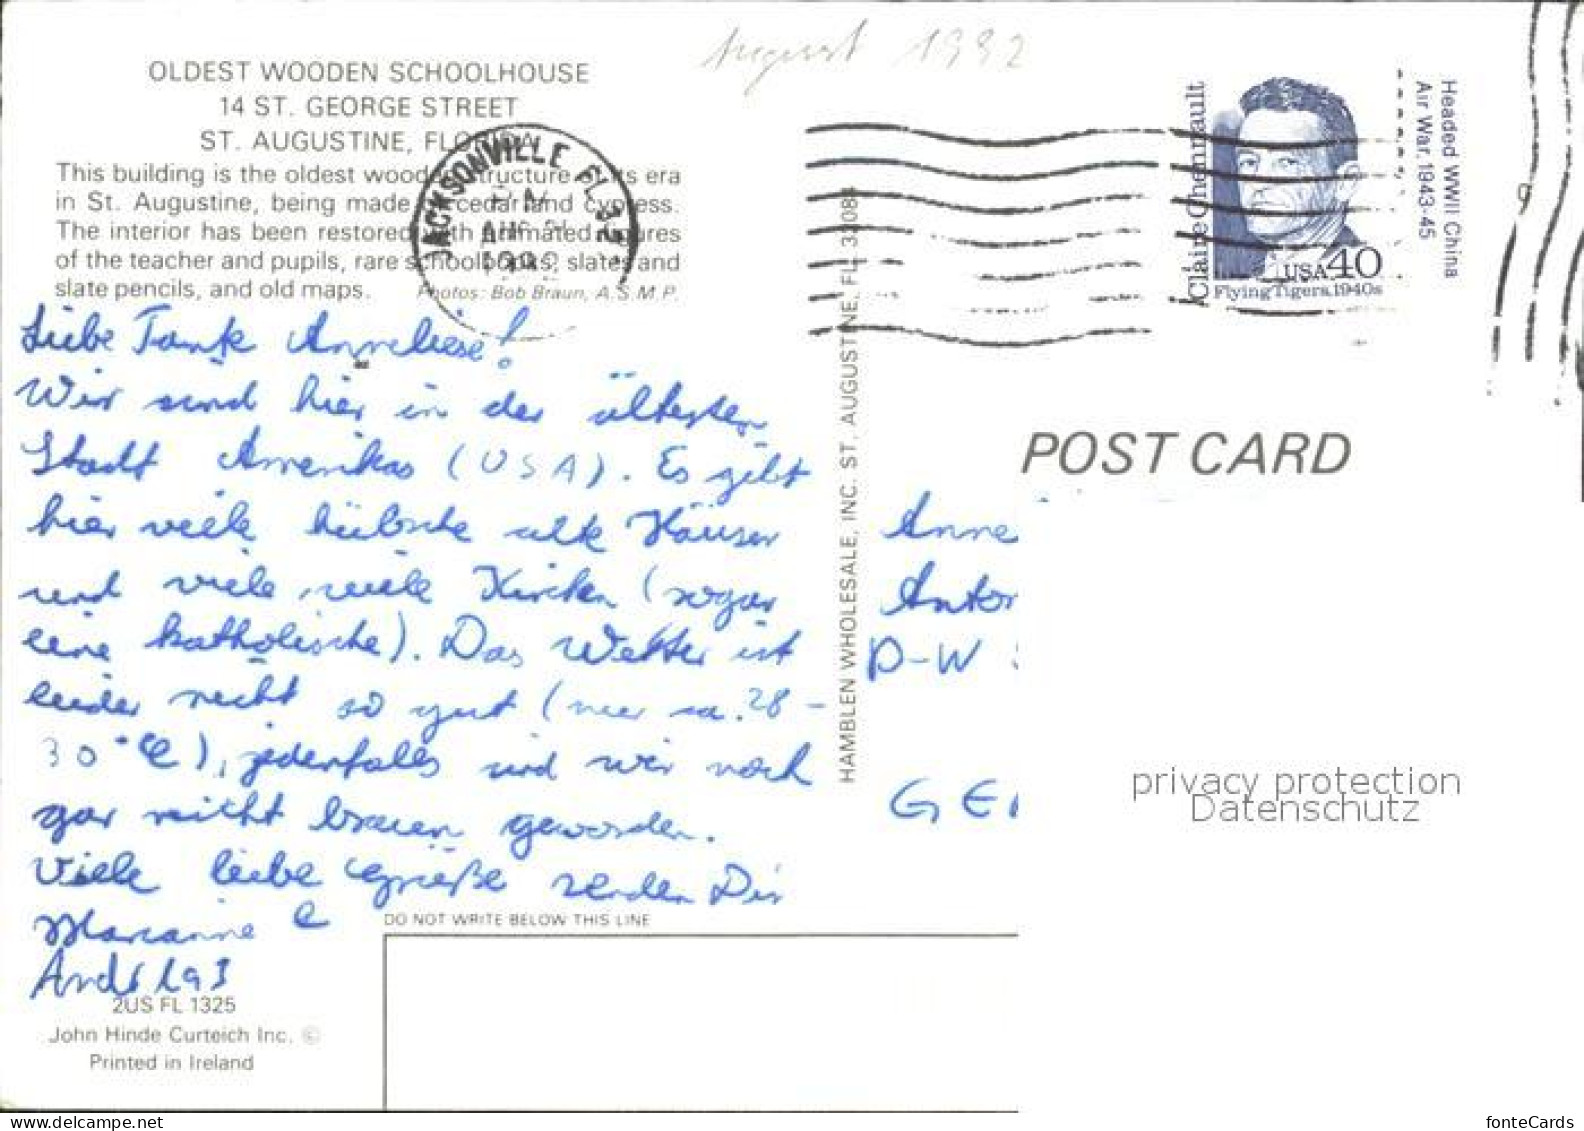 August 1992
OLDEST WOODEN SCHOOLHOUSE
14 ST. GEORGE STREET
ST. AUGUSTINE, FLORIDA
This building is the oldest wooden structure of its era
in St. Augustine, being made of cedar and cypress.
The interior has been restored with animated figures
of the teacher and pupils, rare schoolbooks, slates and
slate pencils, and old maps.
Photos: Bob Braun, A.S.M.P.
JACKSONVILLE FL 322
PM
AUG
1992
Liebe Tante Anneliese!
Wir sind hier in der ältesten
Stadt Amerikas (USA). Es gibt
hier viele hübsche alte Häuser
und viele, viele Kirchen (sogar
eine katholische). Das Wetter ist
leider nicht so gut (nur ca. 28-
30°C), jedenfalls sind wir noch
gar nicht braun geworden.
Viele liebe Grüße senden Dir
Marianne &
Andreas
2US FL 1325
John Hinde Curteich Inc. ©
Printed in Ireland
DO NOT WRITE BELOW THIS LINE
HAMBLEN WHOLESALE, INC. ST. AUGUSTINE, FL 32084
Claire Chennault
USA 40
Flying Tigers, 1940s
Headed WWII China
Air War, 1943-45
POST CARD
Anne
Anton
D-W
GE
privacy protection
Datenschutz
delcampe.net
fonteCards